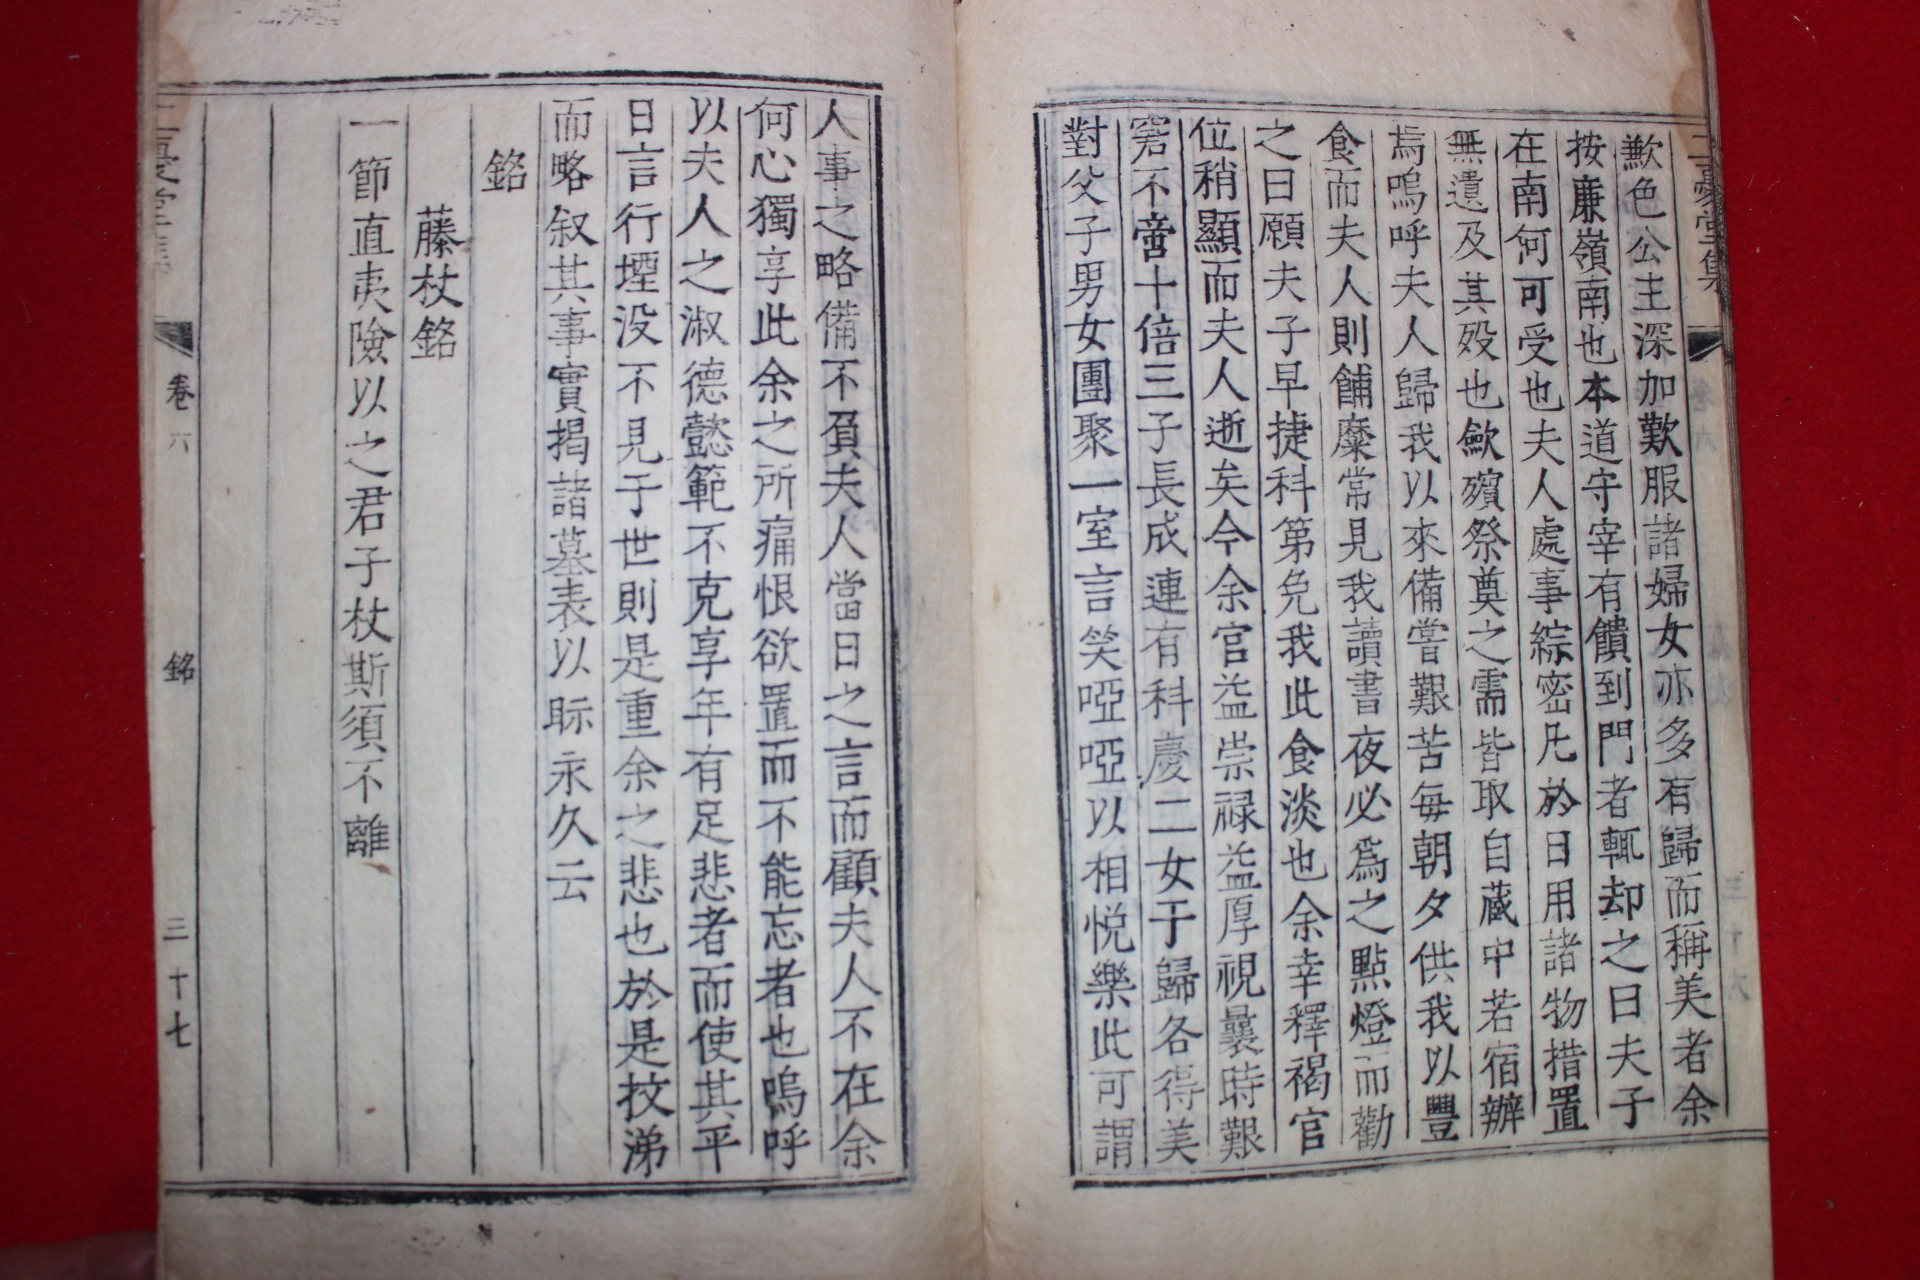 歉色公主深加歎服諸婦女亦多有歸而稱美者余
按廉嶺南也本道守宰有饋到門者輒却之曰夫子
在南何可受也夫人處事綜密凡於日用諸物措置
無遺及其歿也斂殯祭奠之需皆取自藏中若宿辦
焉嗚呼夫人歸我以來備嘗艱苦每朝夕供我以豐
食而夫人則餔糜常見我讀書夜必爲之點燈而勸
之曰願夫子早捷科第免我此食淡也余幸釋褐官
位稍顯而夫人逝矣今余官益崇禄益厚視曩時艱
窘不啻十倍三子長成連有科慶二女于歸各得美
對父子男女團聚一室言笑啞啞以相悅樂此可謂
人事之略備不負夫人當日之言而顧夫人不在余
何心獨享此余之所痛恨欲置而不能忘者也嗚呼
以夫人之淑德懿範不克享年有足悲者而使其平
日言行堙没不見于世則是重余之悲也於是抆涕
而略叙其事實揭諸墓表以眎永久云
銘
藤杖銘
一節直夷險以之君子杖斯須不離
卷六
銘
三十七